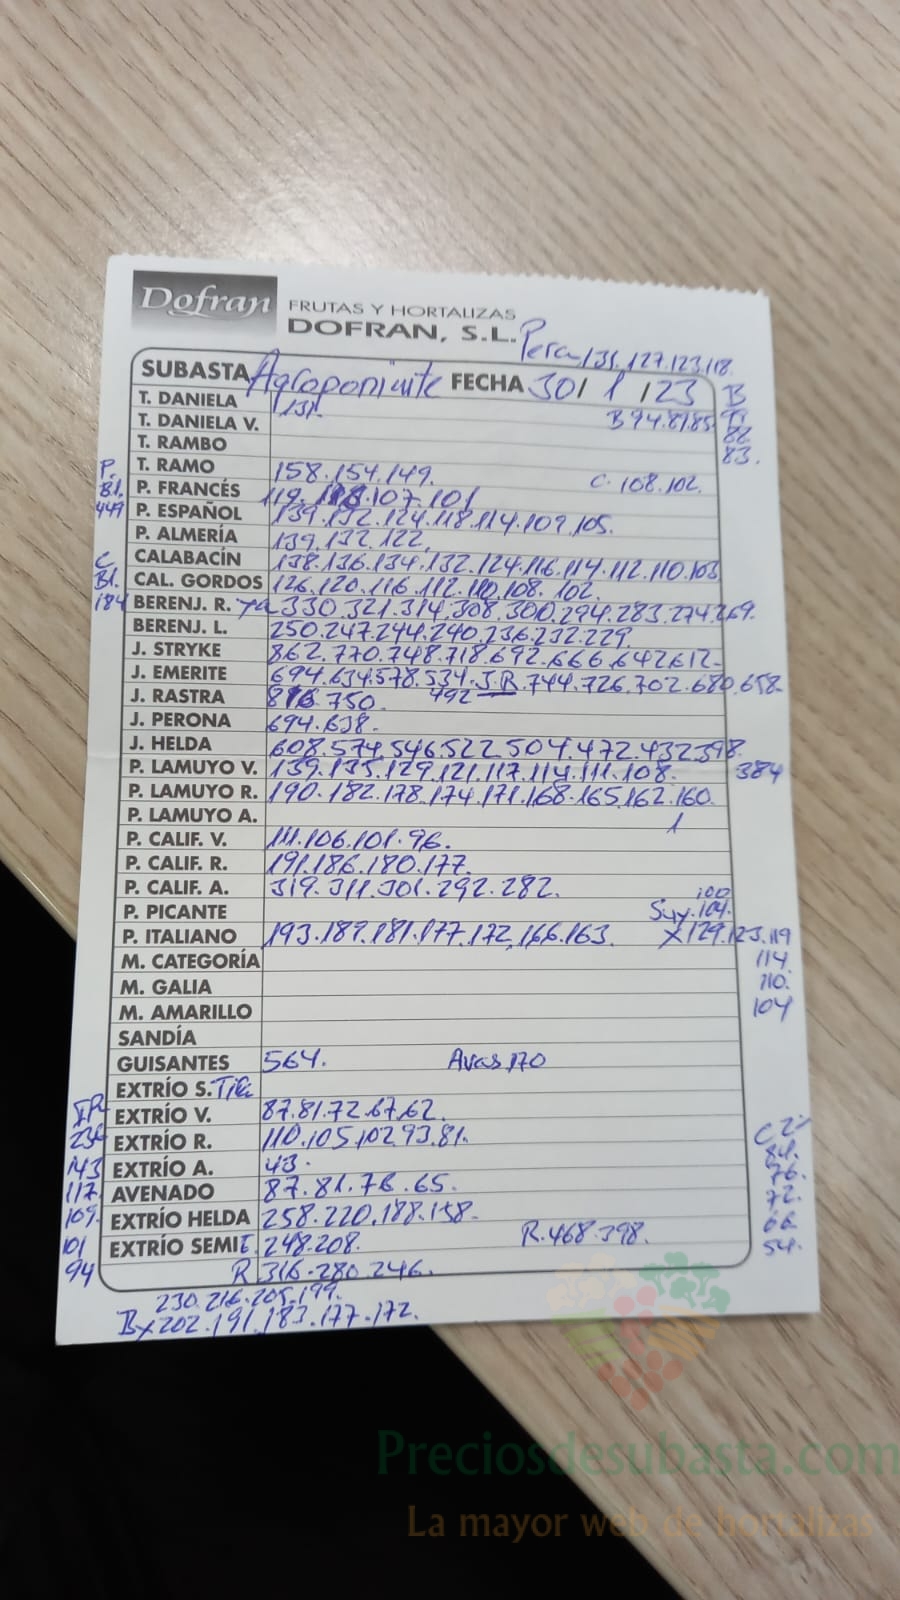 Dofran
FRUTAS Y HORTALIZAS
DOFRAN, S.L. Pera 131.127.123.118.
SUBASTA Agroponiente FECHA 30/1/23 B
T. DANIELA 131.
T. DANIELA V. B 94.87.85
T. RAMBO 83.
P. T. RAMO 158.154.149. C. 108.102.
Bl. P. FRANCÉS 119. 107.101
449 P. ESPAÑOL 139.132.124.118.114.109.105.
P. ALMERÍA 139.132.122.
C CALABACÍN 138.136.134.132.124.116.114.112.110.103
Bl. CAL. GORDOS 126.120.116.112.110.108.102.
184 BERENJ. R. 330.321.314.308.300.294.283.274.269.
BERENJ. L. 250.247.244.240.236.232.229
J. STRYKE 862.770.748.718.692.666.642.612-
J. EMERITE 694.634.578.534. J.R. 744.726.702.680.658.
J. RASTRA 750. 492
J. PERONA 694.638.
J. HELDA 608.574.546.522.504.472.432.398.
P. LAMUYO V. 139.135.129.121.117.114.111.108. 384
P. LAMUYO R. 190.182.178.174.171.168.165.162.160.
P. LAMUYO A. 1
P. CALIF. V. 111.106.101.96.
P. CALIF. R. 191.186.180.177.
P. CALIF. A. 319.311.301.292.282. 100
P. PICANTE 104.
P. ITALIANO 193.189.181.177.172.166.163. X129.123.119
M. CATEGORÍA 114
M. GALIA 110.
M. AMARILLO 104
SANDÍA
GUISANTES 564. Avas 170
EXTRÍO S.
EXTRÍO V. 87.81.72.67.62.
236 EXTRÍO R. 110.105.102.93.81.
143 EXTRÍO A. 43. 84.
117. AVENADO 87.81.76.65. 76.
109. EXTRÍO HELDA 258.220.188.158. 72.
101 EXTRÍO SEMIE. 248.208. R.468.398. 66.
94 R 316.280.246. 54.
230.216.205.199.
Bx202.191.183.177.172.
Preciosdesubasta.com
La mayor web de hortalizas